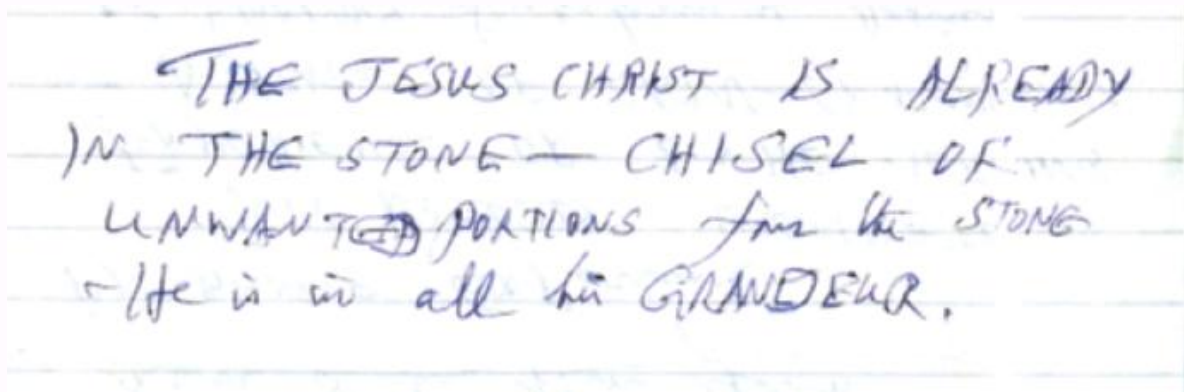 THE JESUS CHRIST IS ALREADY
IN THE STONE — CHISEL OF
UNWANTED PORTIONS from the STONE
- He is in all his GRANDEUR.